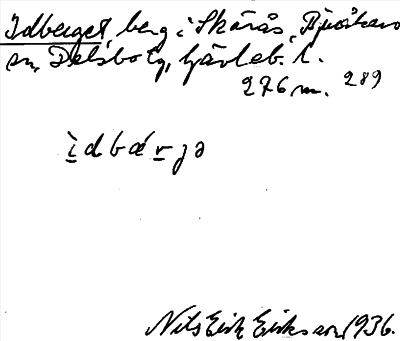 Idberget, berg i Skärås, Bjuråkers
sn, Delsbo tg, Gävleb. l.
276 m. 289
ìdbærjə
Nils Erik Eriksson, 1936.